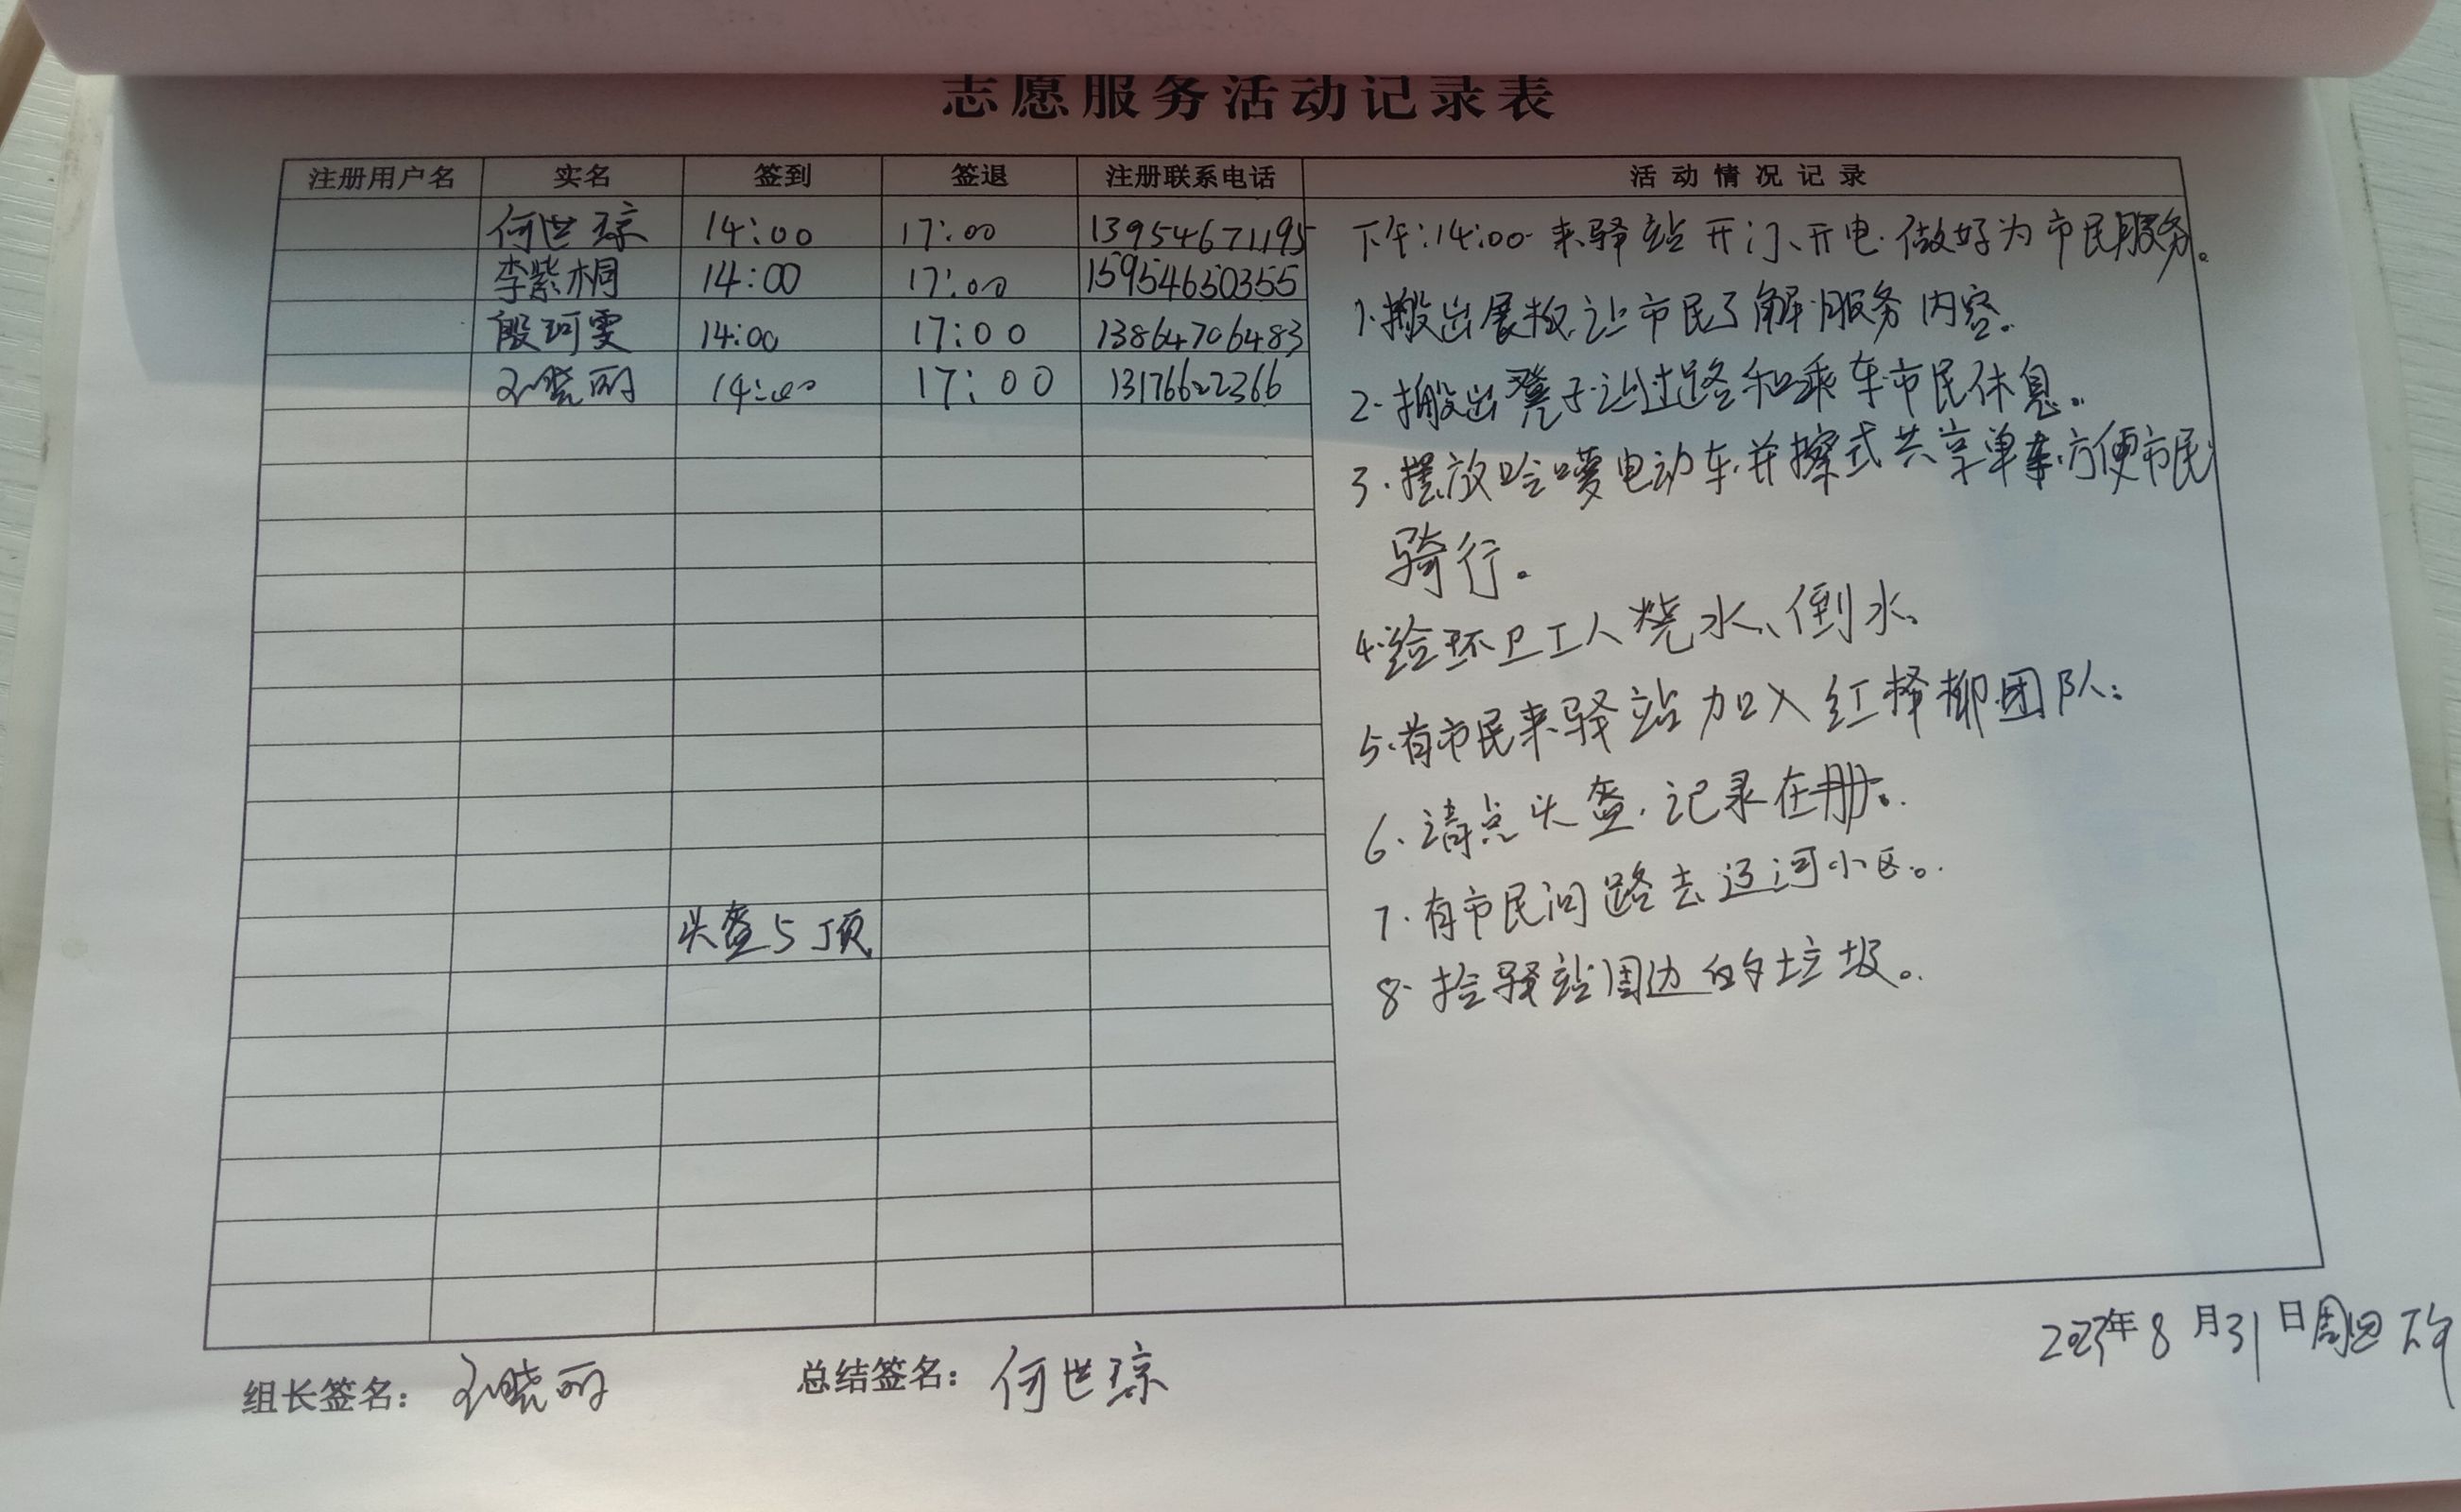 志愿服务活动记录表
注册用户名 实名 签到 签退 注册联系电话 活动情况记录
何世琼 14:00 17:00 13954671195
李紫桐 14:00 17:00 15954650355
殷珂雯 14:00 17:00 13864706483
孙晓丽 14:00 17:00 13176622366
头盔5顶
下午:14:00来驿站开门、开电.做好为市民服务。
1.搬出展板.让市民了解服务内容。
2.搬出凳子让过路和乘车市民休息。
3.摆放哈喽电动车.并擦式共享单车.方便市民
骑行。
4.给环卫工人烧水、倒水。
5.有市民来驿站加入红柽柳团队.
6.清点头盔.记录在册。
7.有市民问路去辽河小区。
8.捡驿站周边的垃圾。
组长签名: 孙晓丽 总结签名: 何世琼
2023年8月31日周四下午